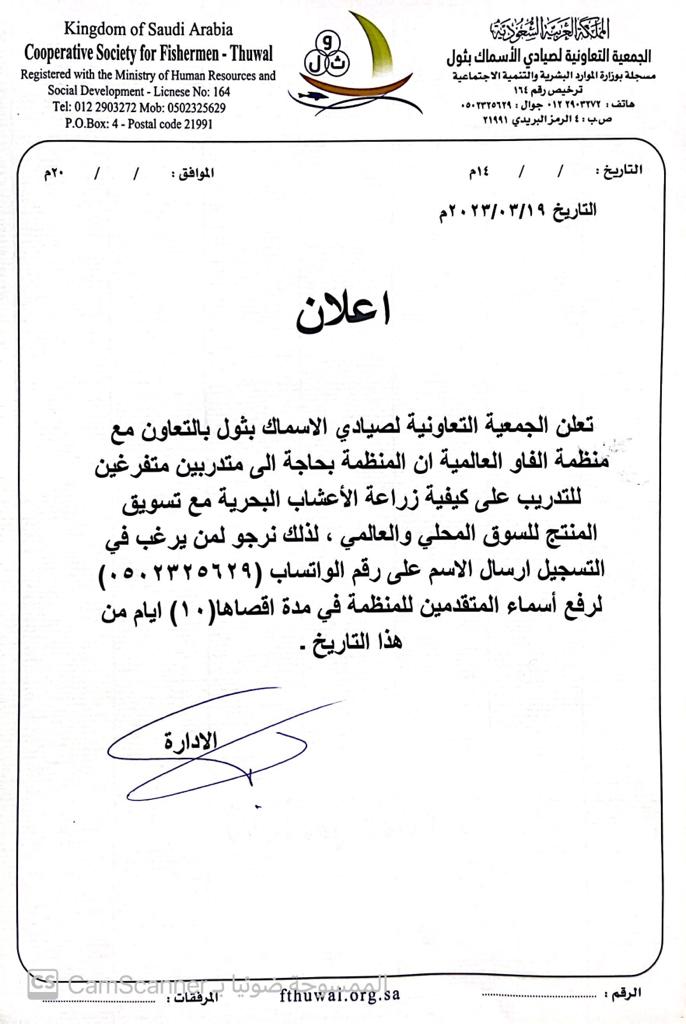 Kingdom of Saudi Arabia
Cooperative Society for Fishermen - Thuwal
Registered with the Ministry of Human Resources and
Social Development - Licnese No: 164
Tel: 012 2903272 Mob: 0502325629
P.O.Box: 4 - Postal code 21991
و
ث ل
المملكة العربية السعودية
الجمعية التعاونية لصيادي الأسماك بثول
مسجلة بوزارة الموارد البشرية والتنمية الاجتماعية
ترخيص رقم ١٦٤
هاتف : ٠١٢ ٢٩٠٣٢٧٢ جوال : ٠٥٠٢٣٢٥٦٢٩
ص ب : ٤ الرمز البريدي ٢١٩٩١
التاريخ : / / ١٤م الموافق : / / ٢٠م
التاريخ ٢٠٢٣/٠٣/١٩م
اعلان
تعلن الجمعية التعاونية لصيادي الاسماك بثول بالتعاون مع
منظمة الفاو العالمية ان المنظمة بحاجة الى متدربين متفرغين
للتدريب على كيفية زراعة الأعشاب البحرية مع تسويق
المنتج للسوق المحلي والعالمي ، لذلك نرجو لمن يرغب في
التسجيل ارسال الاسم على رقم الواتساب (٠٥٠٢٣٢٥٦٢٩)
لرفع أسماء المتقدمين للمنظمة في مدة اقصاها(١٠) ايام من
هذا التاريخ .
الادارة
الممسوحة ضوئيا بـ CamScanner
CS
الرقم : .......... fthuwal.org.sa المرفقات: ..........